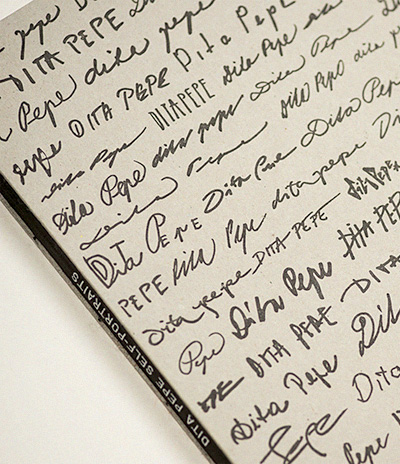 pepe
DITA PEPE dita pepe
Pepe DITA PEPE Dita PEPE
pepe DITAPEPE Dita Pepe dita
Dita Pepe dita pepe Dita Pepe
Dita Pepe Dita Pepe dita
Dita Pepe Dita Pepe
DITA PEPE Dita Pepe dita pepe
PEPE Dita Pepe DITA PEPE
Dita pepe DITA PEPE DITA PEPE
Pepe Dita Pepe DITA
DITA PEPE Dita
Dita Pepe Dita
Pepe Pepe
DITA PEPE SELF-PORTRAITS